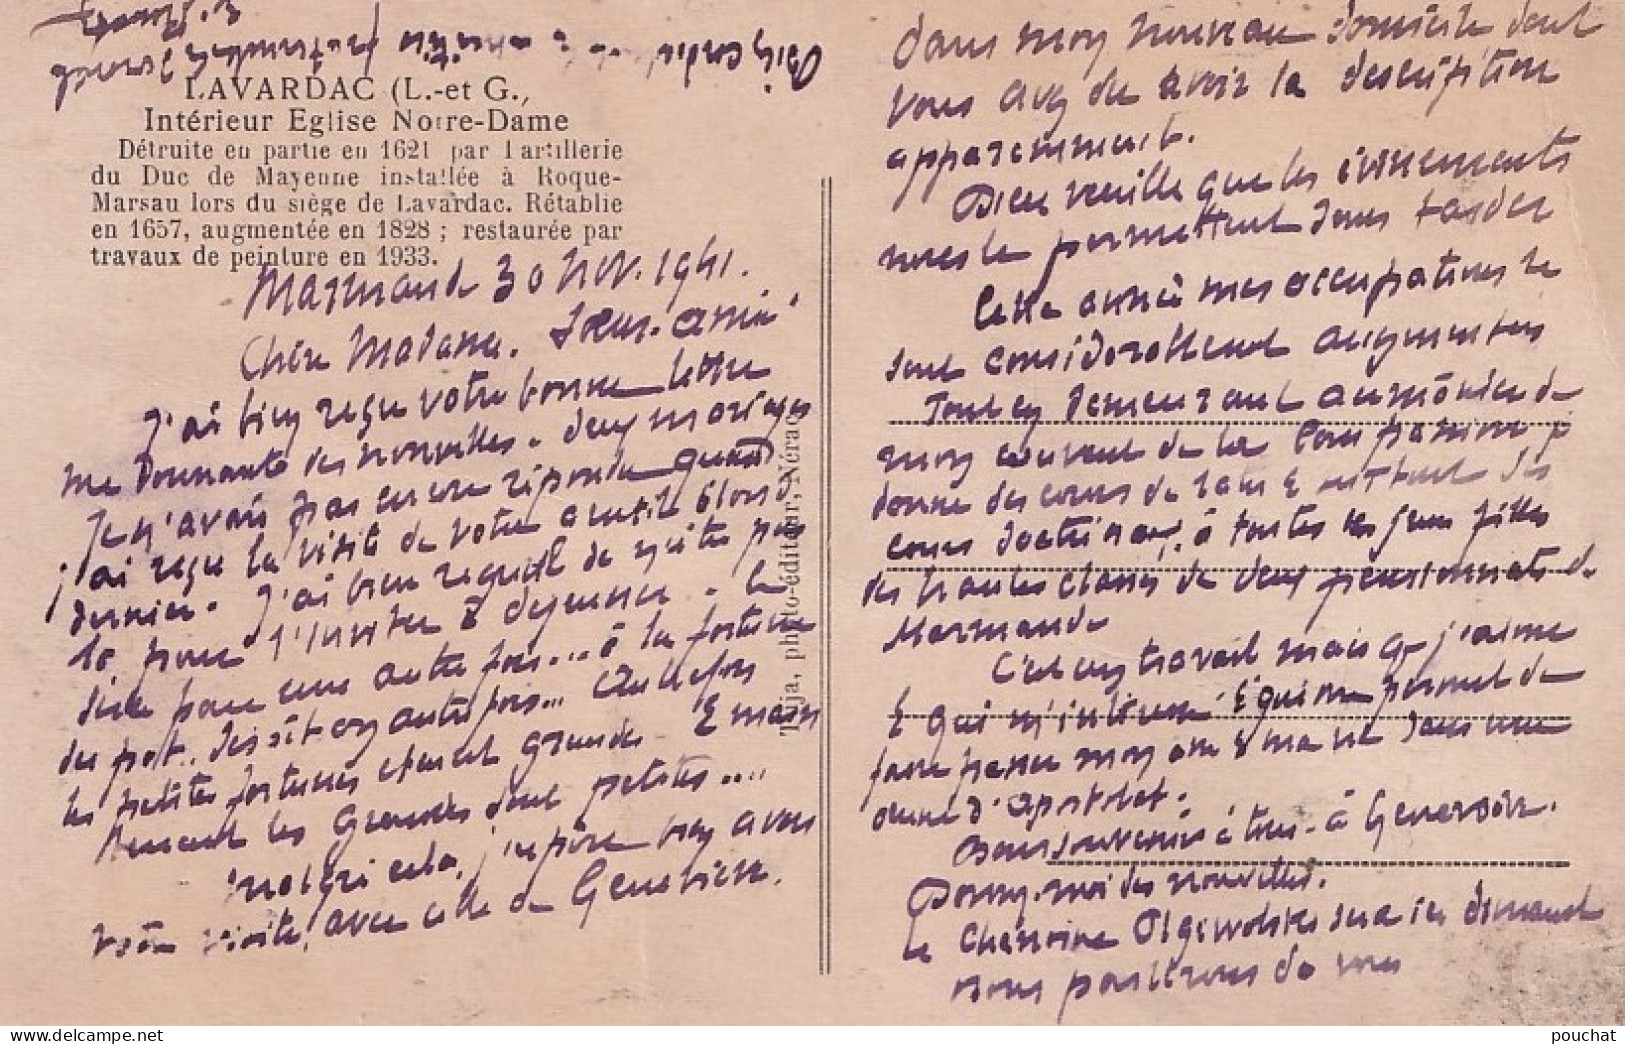 LAVARDAC (L.-et G.,
Intérieur Eglise Notre-Dame
Détruite en partie en 1621 par l'artillerie
du Duc de Mayenne installée à Roque-
Marsau lors du siège de Lavardac. Rétablie
en 1657, augmentée en 1828 ; restaurée par
travaux de peinture en 1933.
Marmande 30 Nov. 1941.
Chère Madame.
J'ai bien reçu votre bonne lettre
me donnant des nouvelles. deux mariages
Je n'avais pas encore répondu quand
j'ai reçu la visite de votre gentil blond
dernier. J'ai bien regretté de n'être pas
là pour l'inviter à déjeuner. Ce
sera pour une autre fois... à la fortune
du pot.. disait on autrefois... Autrefois
les petites fortunes étaient grandes & main
tenant les grandes sont petites....
Malgré cela, j'espère bien avoir
votre visite, avec celle de Geneviève.
Tuja, photo-éditeur, Nérac
dans mon nouveau domicile dont
vous avez dû avoir la description
apparemment.
Dieu veuille que les événements
nous le permettent sans tarder
Cette année mes occupations se
sont considérablement augmentées
Tout en demeurant aumônier de
mon couvent de la Compassion je
donne des cours de latin & surtout des
cours doctrinaux à toutes les jeunes filles
des hautes classes de deux pensionnats de
Marmande
C'est un travail mais que j'aime
& qui m'intéresse & qui me permet de
faire passer mon âme & ma vie dans une
œuvre d'apostolat.
Bons souvenirs à tous - à Geneviève.
Donnez-moi des nouvelles.
Le Chanoine sera ici dimanche
nous parlerons de vous